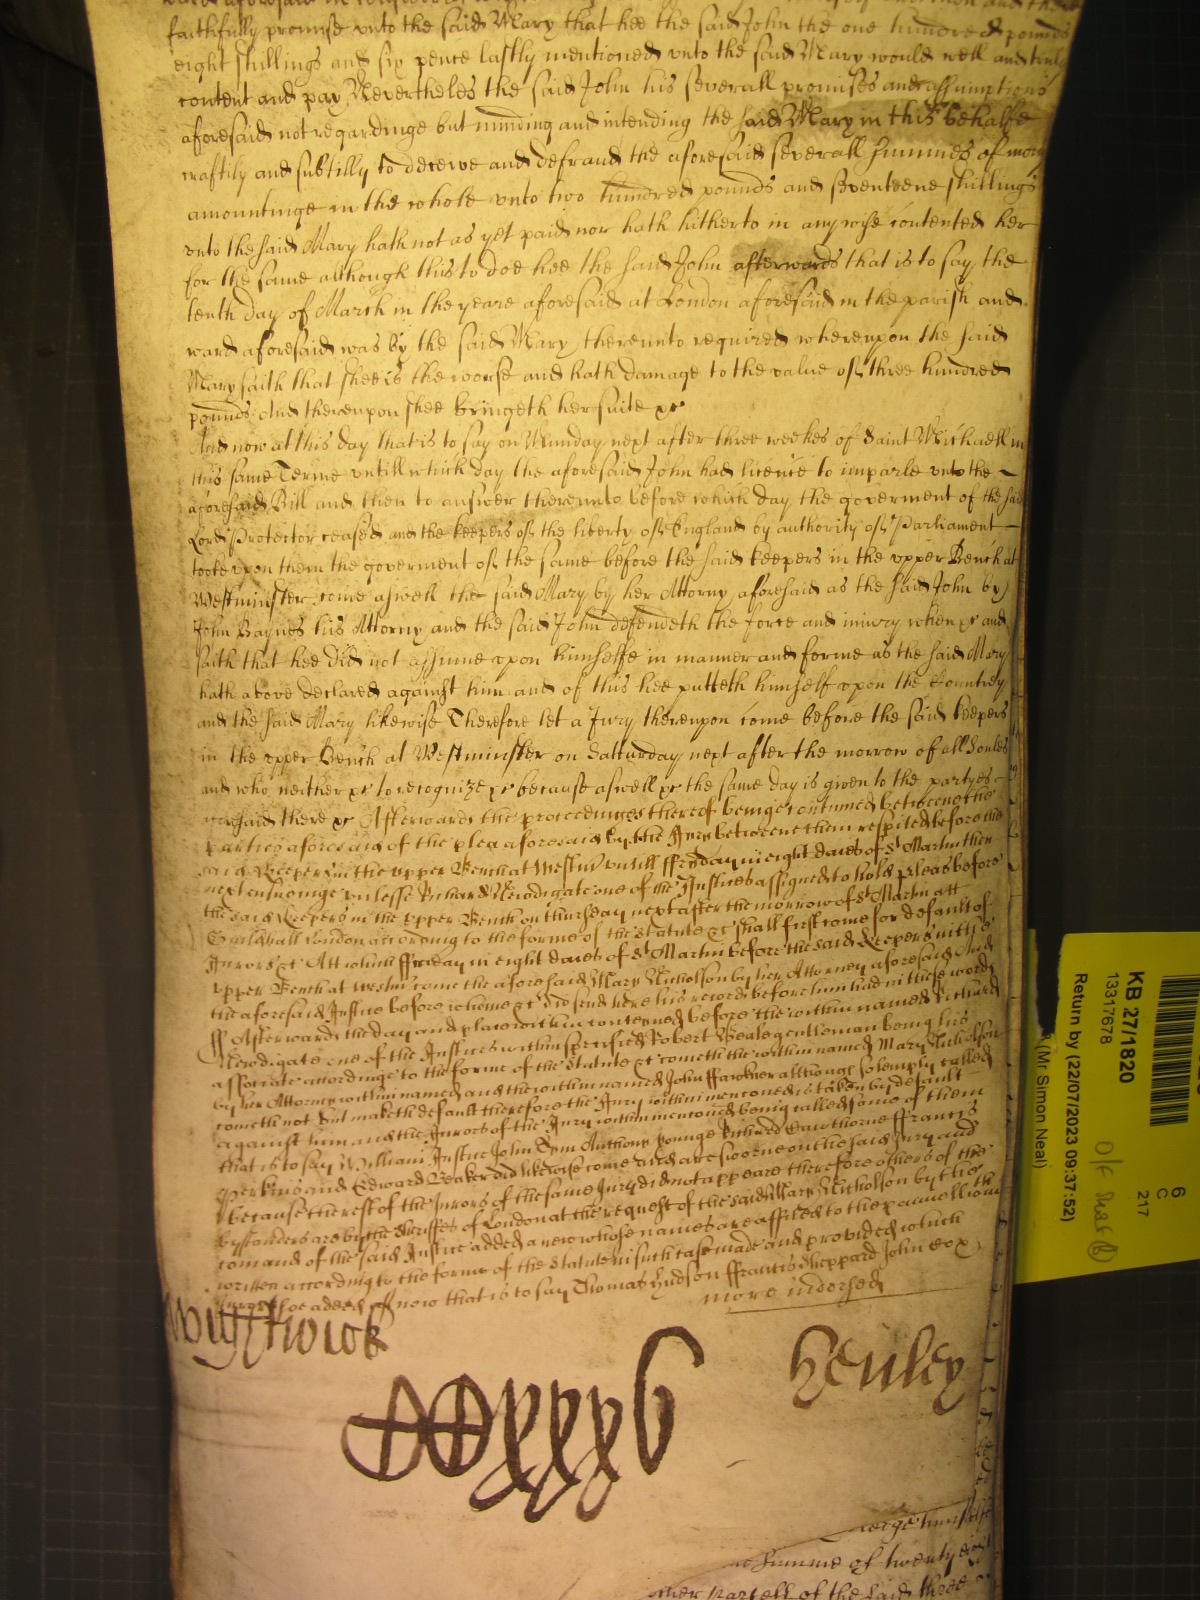 faithfully promise unto the said Mary that hee the said John the one hundred pounds
eight shillings and six pence lastly mentioned unto the said Mary would well and truly
content and pay Nevertheles the said John his severall promises and assumptions
aforesaid not regardinge but minding and intending the said Mary in this behalfe
craftily and subtilly to deceive and defraud the aforesaid severall summes of mony
amountinge in the whole unto two hundred pounds and seventeene shillings
unto the said Mary hath not as yet paid nor hath hitherto in any wise contented her
for the same although this to doe hee the said John afterwards that is to say the
tenth day of March in the yeare aforesaid at London aforesaid in the parish and
ward aforesaid was by the said Mary thereunto required whereupon the said
Mary saith that shee is the worse and hath damage to the value of three hundred
pounds And thereupon shee bringeth her suite &c
And now at this day that is to say on Munday next after three weekes of Saint Michaell in
this same Terme untill which day the aforesaid John had licence to imparle unto the
aforesaid Bill and then to answer thereunto before which day the goverment of the said
Lord Protector ceased and the keepers of the liberty of England by authority of Parliament
tooke upon them the goverment of the same before the said keepers in the upper Bench at
Westminster come aswell the said Mary by her Attorny aforesaid as the said John by
John Baynes his Attorny and the said John defendeth the force and iniury when &c and
saith that hee did not assume upon himselfe in manner and forme as the said Mary
hath above declared against him and of this hee putteth himself upon the Countrey
and the said Mary likewise Therefore let a Jury thereupon come before the said keepers
in the upper Bench at Westminster on Satturday next after the morrow of all Soules
and who neither &c to recognize &c because aswell &c the same day is given to the partyes
aforesaid there &c Afterwards the proceedinges thereof beinge continued betweene the
parties aforesaid of the plea aforesaid by the Jury betweene them respited before the
said Keepers in the upper Bench at Westm untill ffryday in eight daies of St Martin then
next ensuinge unlesse Richard Newdigate one of the Justices assigned to hold pleas before
the said Keepers in the upper Bench on thursday next after the morrow of St Martin att
Guildhall London accordinge to the forme of the statute &c shall first come for default of
Jurors &c Att which ffryday in eight daies of St Martin before the said Keepers in the
upper Bench at Westm come the aforesaid Mary Nicholson by her Attorney aforesaid And
the aforesaid Justice before whome &c did send here his record before him had in these words
ss Afterwards the day and place within conteyned before the within named Richard
Newdigate one of the Justices within specified Robert Beale gentleman being his
associate accordinge to the forme of the statute &c cometh the within named Mary Nicholson
by her Attorny within named and the within named John ffawkner althouge solemply called
cometh not but maketh default therefore the Jury within menconed is taken by default
against him and the Jurors of the Jury within mentioned being called some of them
that is to say William Justice John Anthony younge Richard Hawthorne ffrancis
Perkins and Edward Beaker did likewise come and are sworne on the said Jury and
because the rest of the Jurors of the same Jury did not appeare therefore others of the
bystanders are by the Sheriffes of London at the request of the said Mary Nicholson by the
comand of the said Justice added a new whose names are affiled to the pannell within
written according to the forme of the statute in such case made and provided which
Jurors soe added of new that is to say Thomas Hudson ffrancis Sheppard John Cox
more indorsed
Wightwick
Henley
eorge himselfe
summe of twenty eight
other parcell of the said three
KB 27/1820
13317678
Return by (22/07/2023 09:37:52)
(Mr Simon Neal)
6
C
217